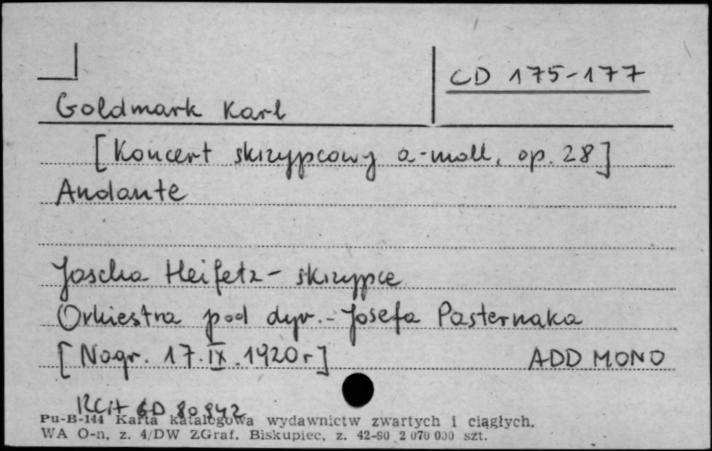 CD 175-177
Goldmark Karl
[Koncert skrzypcowy a-moll, op. 28]
Andante
Jascha Heifetz - skrzypce
Orkiestra pod dyr. - Josefa Pasternaka
[Nagr. 17.IX.1920r] ADD MONO
GD 80942
Pu-B-144 Karta katalogowa wydawnictw zwartych i ciągłych.
WA O-n, z. 4/DW ZGraf. Biskupiec, z. 42-80 2 070 000 szt.